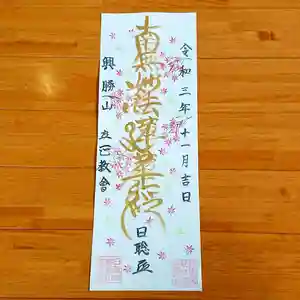 令和三年十一月吉日
南無妙法蓮華経
日聡
興勝山
立正教會